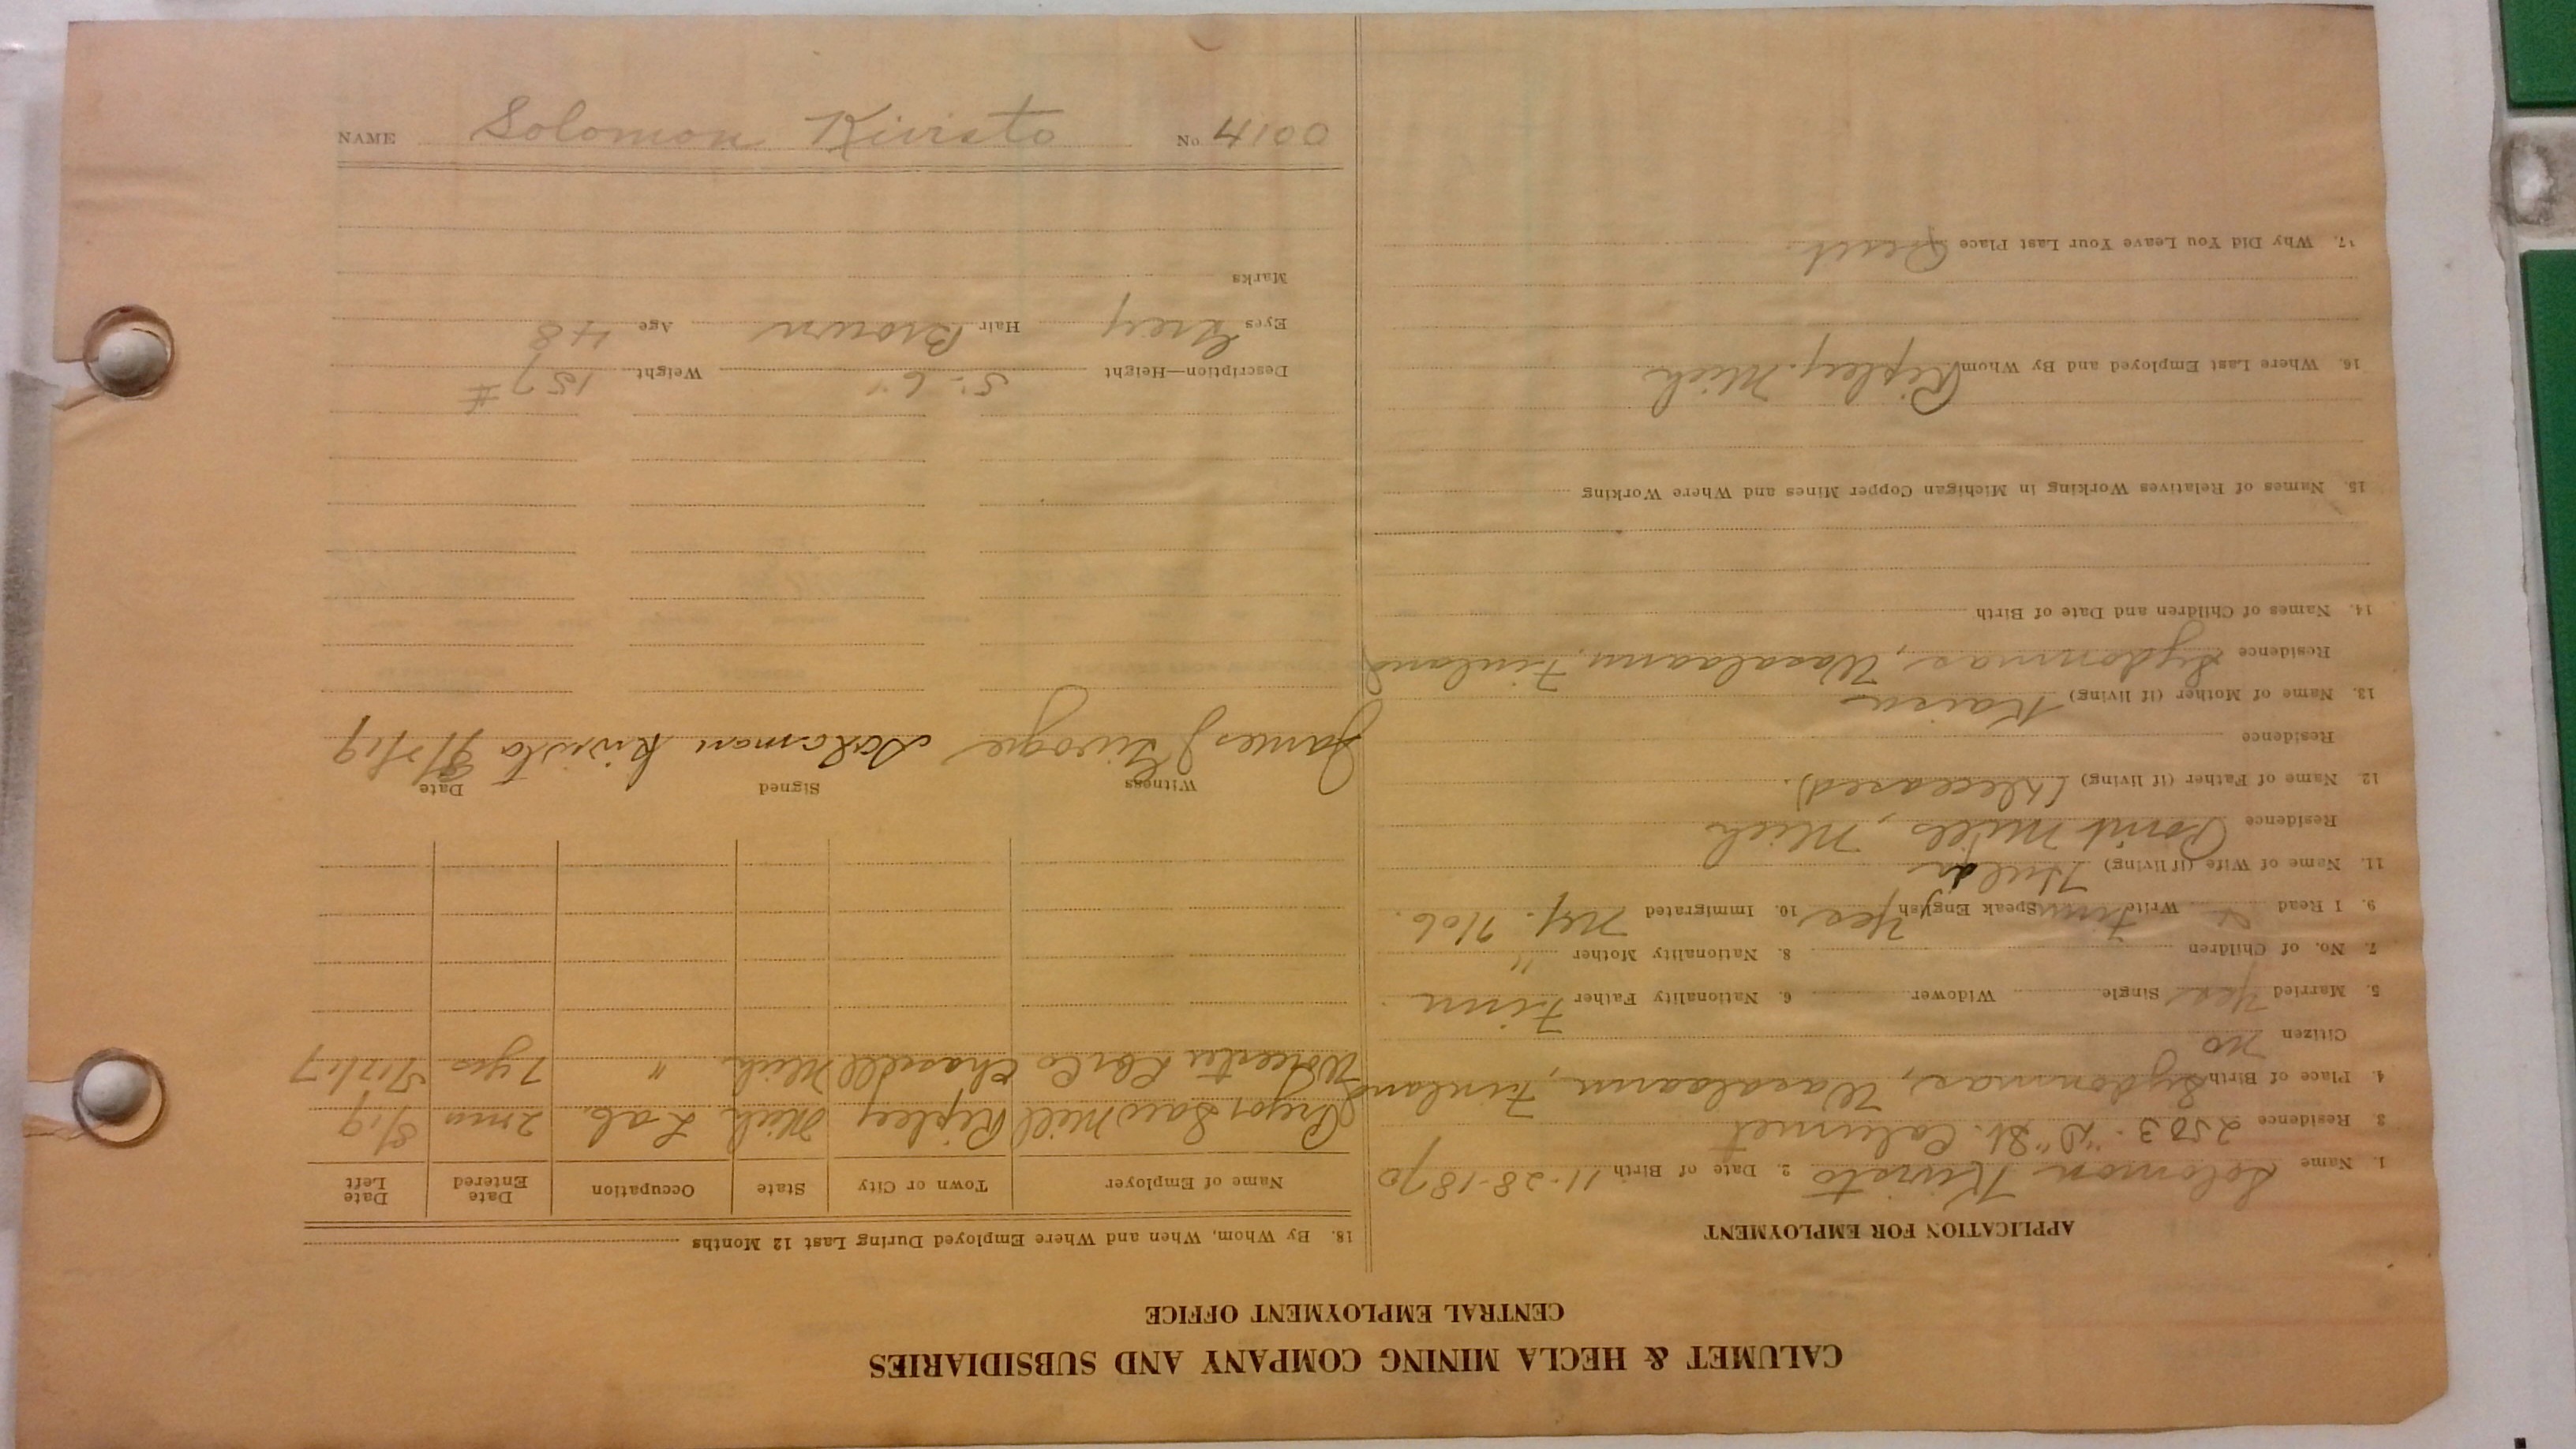 CALUMET & HECLA MINING COMPANY AND SUBSIDIARIES
CENTRAL EMPLOYMENT OFFICE
APPLICATION FOR EMPLOYMENT
1. Name Solomon Kivisto 2. Date of Birth 11-28-1870
3. Residence 2503-"D" St. Calumet
4. Place of Birth Sydonmaa, Wasalaann, Finland
Citizen No
5. Married Yes Single Widower 6. Nationality Father Finn
7. No. of Children 8. Nationality Mother "
9. I Read Write Finn Speak English Yes 10. Immigrated
11. Name of Wife (if living) Hulda
Residence Point Mills, Mich
12. Name of Father (if living) (Deceased).
Residence
13. Name of Mother (if living) Kaisa
Residence Sydonmaa, Wasalaann, Finland
14. Names of Children and Date of Birth
15. Names of Relatives Working in Michigan Copper Mines and Where Working
16. Where Last Employed and By Whom Ripley, Mich
17. Why Did You Leave Your Last Place Quit.
18. By Whom, When and Where Employed During Last 12 Months
Name of Employer Town or City State Occupation Date Entered Date Left
Saw Mill Ripley Mich Lab. 2 mos 8/19
Worcester Chassell Mich. " 7 yrs
Witness Signed Date
James J Solomon Kivisto
Description—Height 5'-6" Weight 157 #
Eyes Grey Hair Brown Age 48
Marks
NAME Solomon Kivisto No. 4100